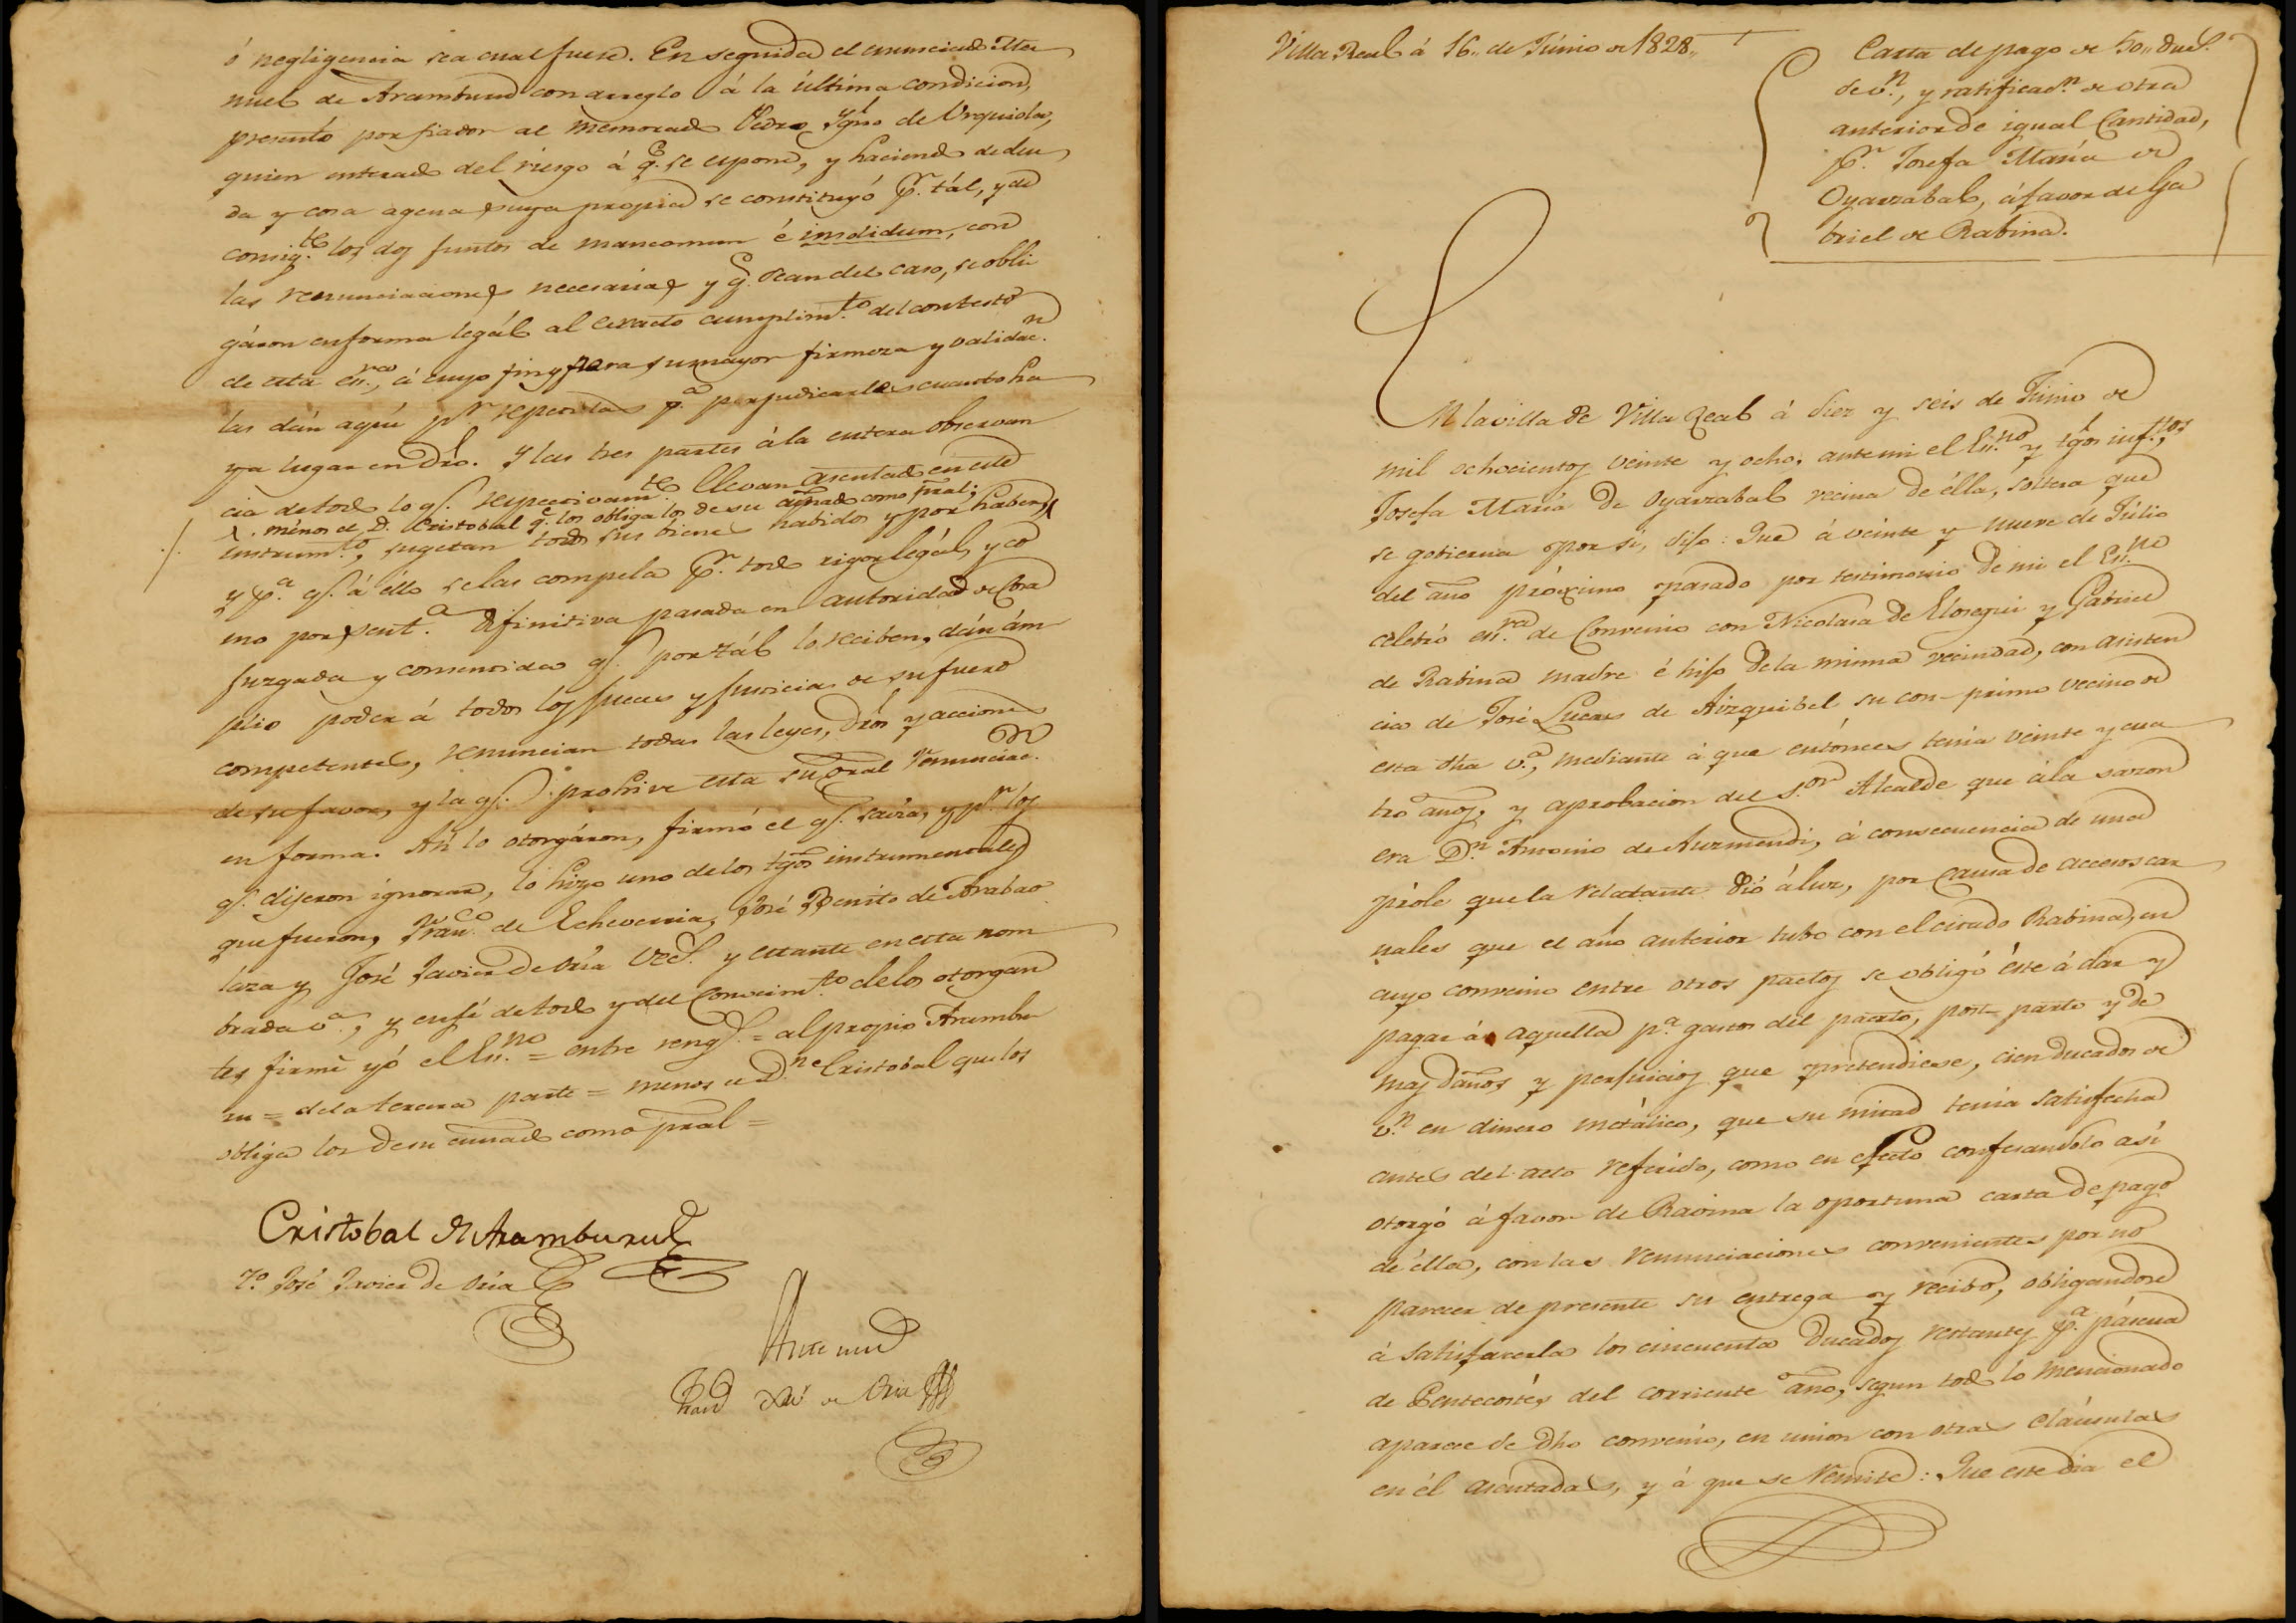 ó negligencia sea cual fuere. En seguida el enunciado Ma
nuel de Aramburu con arreglo á la última condicion,
presentó por fiador al memorado Pedro Ygn.º de Urquiola,
quien enterado del riesgo á q.e se espone, y haciendo de deu
da y cosa agena suya propia se constituyó p.r tál, y de
consig.te los dos juntos de mancomun é insolidum, con
las renunciaciones necesarias y q.e sean del caso, se obli
gáron en forma legál al exacto cumplim.to del contesto
de esta es.ra, á cuyo fin y para su mayor firmeza y validac.n
las dán aquí p.r repetidas p.a perjudicarles cuanto ha
ya lugar en dro. Y las tres partes á la entera observan
cia de todo lo q.e respectivam.te llevan asentado en este
. menos el D. Cristobal q.e los obliga los de su ahijado como pral;
instrum.to, sugetan todos sus bienes habidos y por haber,
y p.a q.e á ello se las compela p.r todo rigor legál, y co
mo por sent.a difinitiva pasada en autoridad de Cosa
juzgada y consentida q.e por tál lo reciben, dán ám
plio poder á todos los jueces y justicias de su fuero
competentes, renuncian todas las leyes, dros y acciones
de su favor, y la q.e prohive esta su gral renunciac.on
en forma. Así lo otorgáron, firmó el q.e savia, y p.r los
q.e dijeron ignorar, lo hizo uno de los tgos instrumentales
que fueron, Fran.co de Echeverria, José Benito de Arabao
laza y José Javier de Oria vec.s y estante en esta nom
brada v.a, y en fé de todo y del Conocim.to de los otorgan
tes firmé yó el Es.no = entre reng.s = al propio Arambu
ru = de la tercera parte = menos el D.n Cristobal que los
obliga los de su ahijado como pral =
Cristobal de Aramburu
T.º José Javier de Oria
Ante mi
Fran.co Xav.r de Oria
Villa Real á 16,, de Júnio de 1828,,
Carta de pago de 50,, duc.s
de v.n, y ratificac.n de otra
anterior de igual Cantidad,
p.r Josefa María de
Oyarzabal, á favor de Ga
briel de Rabina.
En la villa de Villa Real á diez y seis de Júnio de
mil ochocientos veinte y ocho, ante mi el Es.no y tgos inf.tos
Josefa María de Oyarzabal vecina de élla, soltera que
se gobierna por sí, dijo: Que á veinte y nueve de Júlio
del año próximo pasado por testimonio de mi el Es.no
celebró es.ra de Convenio con Nicolasa de Elosegui y Gabriel
de Rabina madre é hijo de la misma vecindad, con asisten
cia de José Lucas de Aizquibel su con-primo vecino de
esta dha v.a, mediante á que entónces tenia veinte y cua
tro años, y aprobacion del S.or Alcalde que á la sazon
era D.n Antonio de Auzmendi, á consecuencia de una
próle que la relatante dió á luz, por causa de accesos car
nales que el año anterior tubo con el citado Rabina, en
cuyo convenio entre otros pactos se obligó éste á dar y
pagar á aquella p.a gastos del parto, post-parto y de
mas daños y perjuicios que pretendiese, cien ducados de
v.n en dinero metálico, que su mitad tenia satisfecha
antes del acto referido, como en efecto confesandolo así
otorgó á favor de Ravina la oportuna carta de pago
de élla, con las renunciaciones convenientes por no
parecer de presente su entrega y recibo, obligandose
á satisfacerla los cincuenta ducados restantes p.a páscua
de Pentecostés del corriente año, segun todo lo mencionado
aparece de dho convenio, en union con otras cláusulas
en él asentadas, y á que se remite: Que este dia el